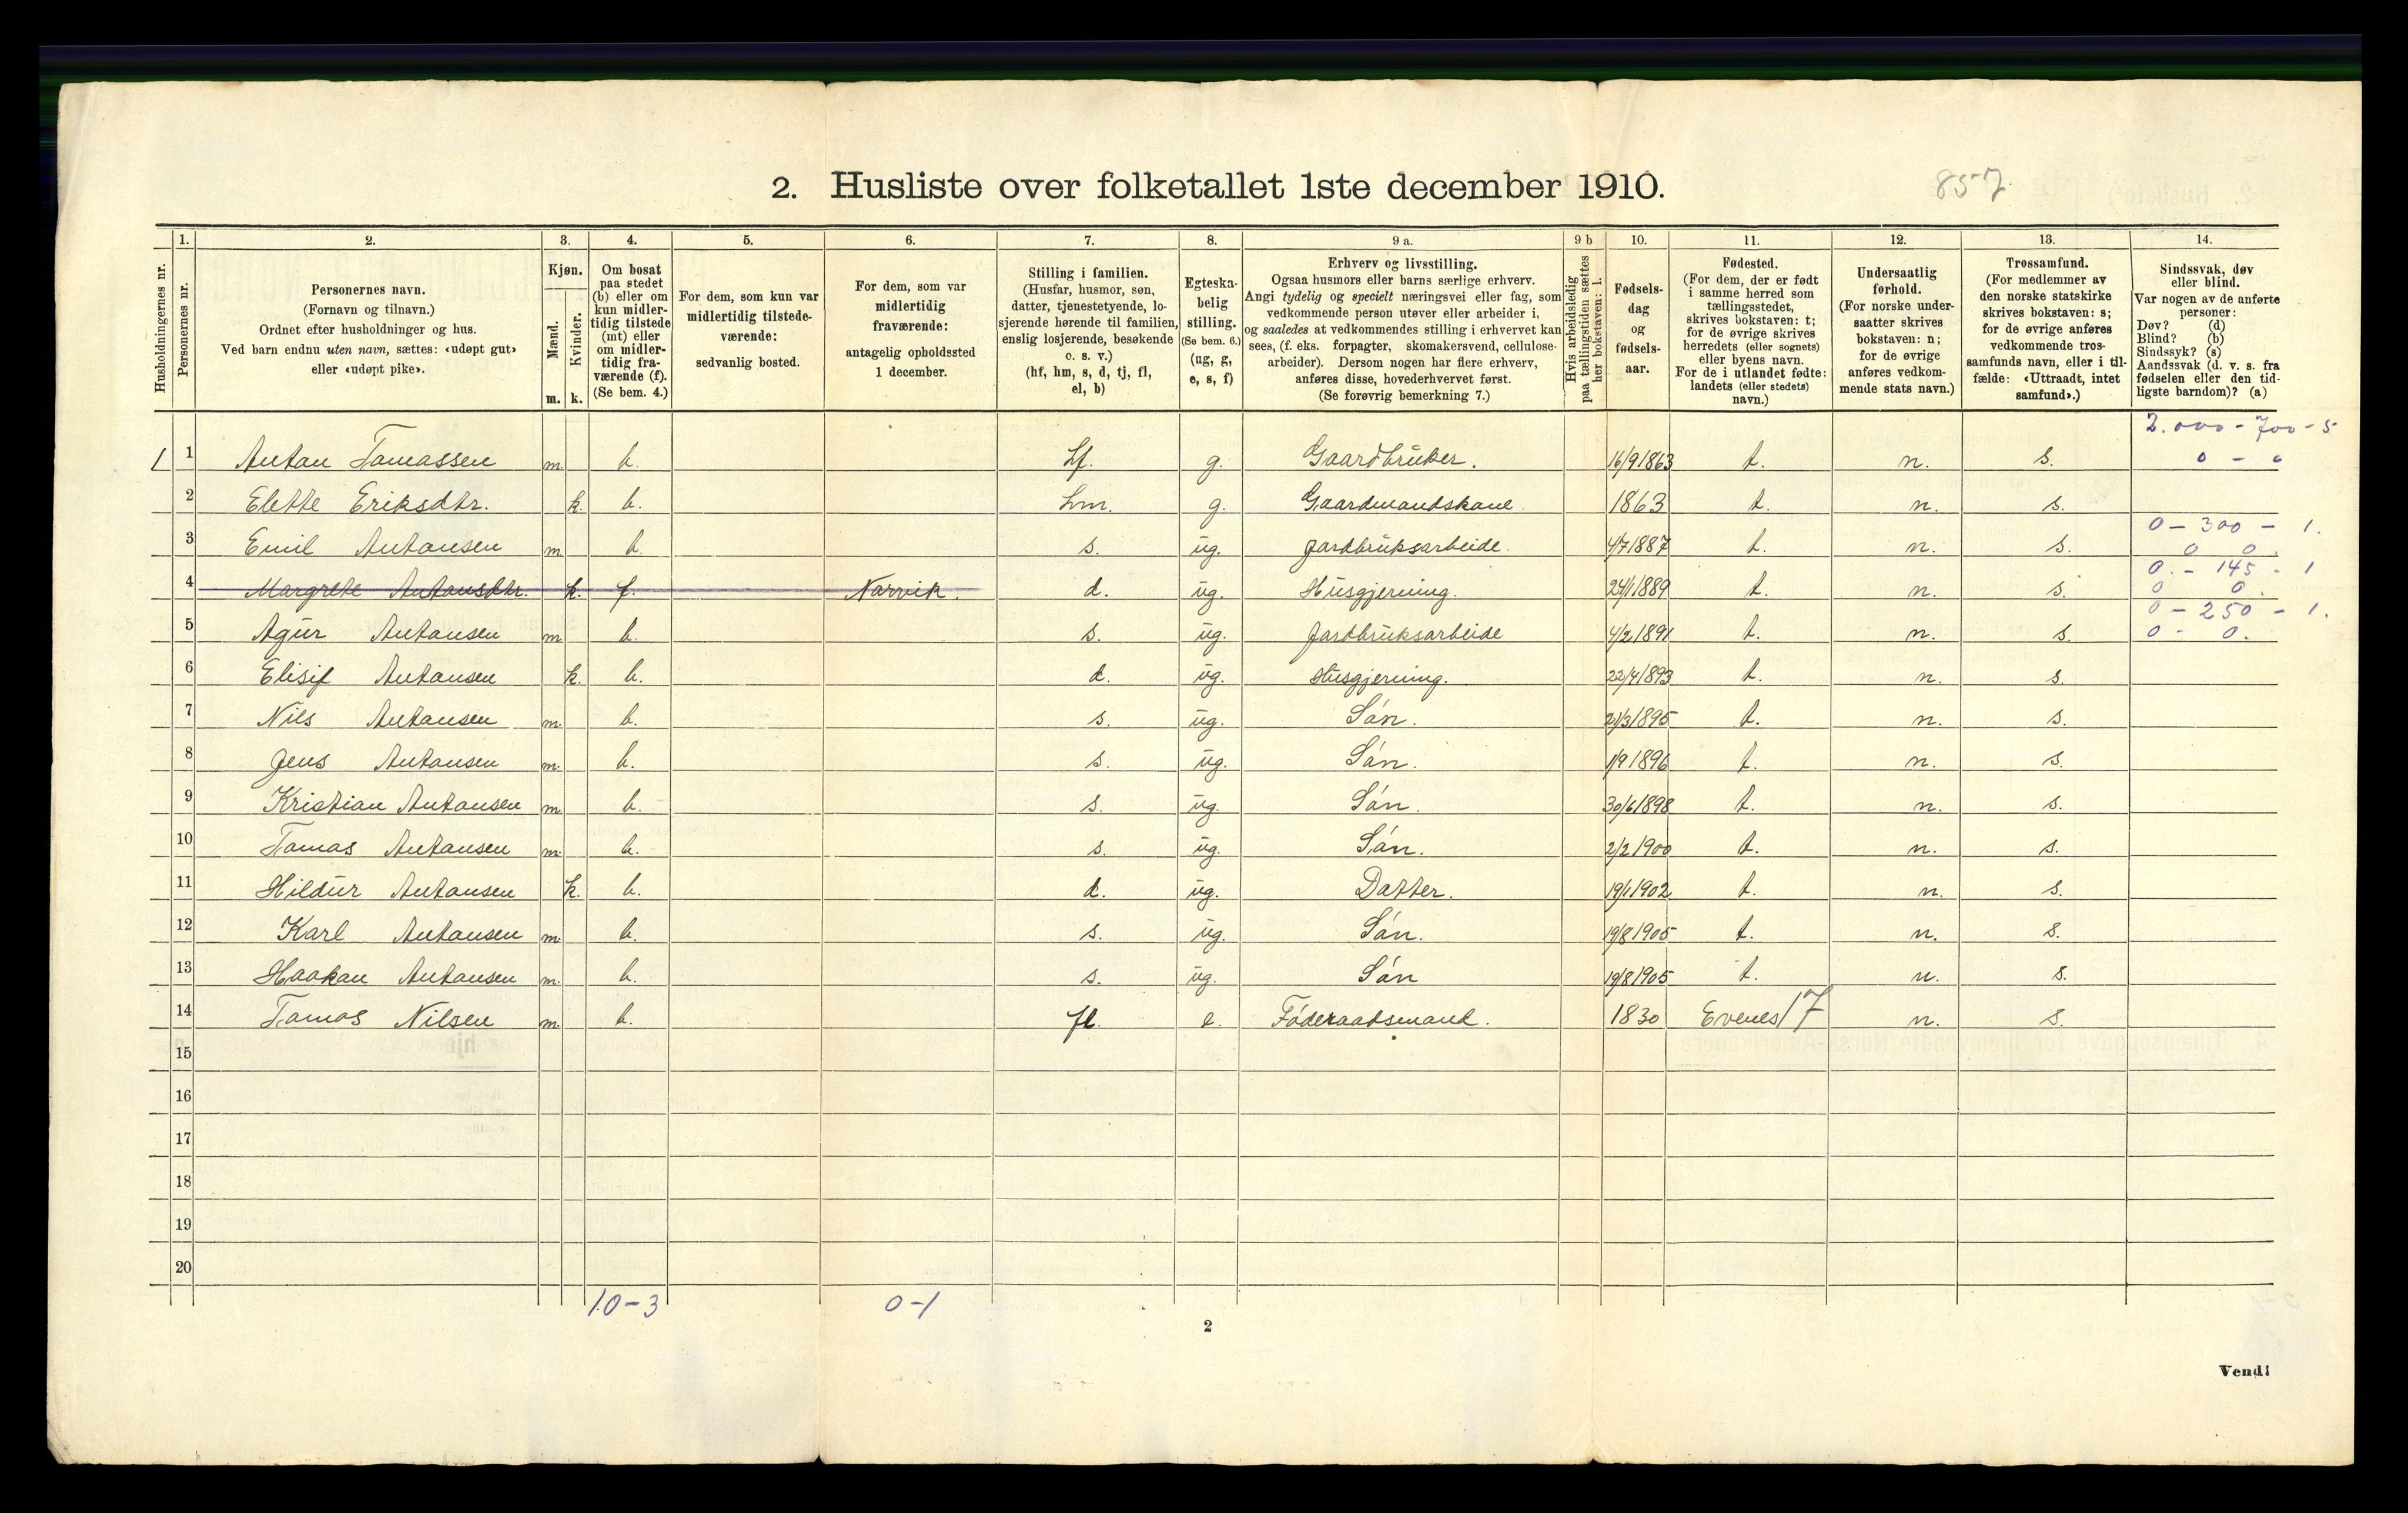 2. Husliste over folketallet 1ste december 1910.
857
Husholdningernes nr.
1.
Personernes nr.
2.
Personernes navn.
(Fornavn og tilnavn.)
Ordnet efter husholdninger og hus.
Ved barn endnu uten navn, sættes: «udøpt gut»
eller «udøpt pike».
3.
Kjøn.
Mænd.
Kvinder.
m. k.
4.
Om bosat
paa stedet
(b) eller om
kun midler-
tidig tilstede
(mt) eller
om midler-
tidig fra-
værende (f).
(Se bem. 4.)
5.
For dem, som kun var
midlertidig tilstede-
værende:
sedvanlig bosted.
6.
For dem, som var
midlertidig
fraværende:
antagelig opholdssted
1 december.
7.
Stilling i familien.
(Husfar, husmor, søn,
datter, tjenestetyende, lo-
sjerende hørende til familien,
enslig losjerende, besøkende
o. s. v.)
(hf, hm, s, d, tj, fl,
el, b)
8.
Egteska-
belig
stilling.
(Se bem. 6.)
(ug, g,
e, s, f)
9 a.
Erhverv og livsstilling.
Ogsaa husmors eller barns særlige erhverv.
Angi tydelig og specielt næringsvei eller fag, som
vedkommende person utøver eller arbeider i,
og saaledes at vedkommendes stilling i erhvervet kan
sees, (f. eks. forpagter, skomakersvend, cellulose-
arbeider). Dersom nogen har flere erhverv,
anføres disse, hovederhvervet først.
(Se forøvrig bemerkning 7.)
9 b
Hvis arbeidsledig
paa tællingstiden sættes
her bokstaven: l.
10.
Fødsels-
dag
og
fødsels-
aar.
11.
Fødested.
(For dem, der er født
i samme herred som
tællingsstedet,
skrives bokstaven: t;
for de øvrige skrives
herredets (eller sognets)
eller byens navn.
For de i utlandet fødte:
landets (eller stedets)
navn.)
12.
Undersaatlig
forhold.
(For norske under-
saatter skrives
bokstaven: n;
for de øvrige
anføres vedkom-
mende stats navn.)
13.
Trossamfund.
(For medlemmer av
den norske statskirke
skrives bokstaven: s;
for de øvrige anføres
vedkommende tros-
samfunds navn, eller i til-
fælde: «Uttraadt, intet
samfund».)
14.
Sindssvak, døv
eller blind.
Var nogen av de anførte
personer:
Døv? (d)
Blind? (b)
Sindssyk? (s)
Aandssvak (d. v. s. fra
fødselen eller den tid-
ligste barndom)? (a)
2.000 - 700 - 5
1 1 Antan Tamassen m. b. hf. g. Gaardbruker. 16/9 1863 t. n. s. 0 - 0
2 Elette Eriksdtr. k. b. hm. g. Gaardmandskone 1863 t. n. s.
0 - 300 - 1.
3 Emil Antansen m. b. s. ug. Jardbruksarbeide. 4/7 1887 t. n. s. 0 0.
0. - 145 - 1
4 Margrete Antansdtr. k. f. Narvik. d. ug. Husgjerning. 24/1 1889 t. n. s. 0 0.
0 - 250 - 1.
5 Agur Antansen m. b. s. ug. Jardbruksarbeide 4/2 1891 t. n. s. 0 - 0.
6 Elisif Antansen k. b. d. ug. Husgjerning. 22/4 1893 t. n. s.
7 Nils Antansen m. b. s. ug. Són. 21/3 1895 t. n. s.
8 Jens Antansen m. b. s. ug. Són. 1/9 1896 t. n. s.
9 Kristian Antansen m. b. s. ug. Són. 30/6 1898 t. n. s.
10 Tamas Antansen m. b. s. ug. Són. 2/2 1900 t. n. s.
11 Hildur Antansen k. b. d. ug. Datter. 19/1 1902 t. n. s.
12 Karl Antansen m. b. s. ug. Són. 19/8 1905 t. n. s.
13 Haakan Antansen m. b. s. ug. Són 19/8 1905 t. n. s.
14 Tamas Nilsen m. b. fl. e. Fóderaadsmand. 1830 Evenes 17 n. s.
15
16
17
18
19
20
10-3 0-1
2
Vend!